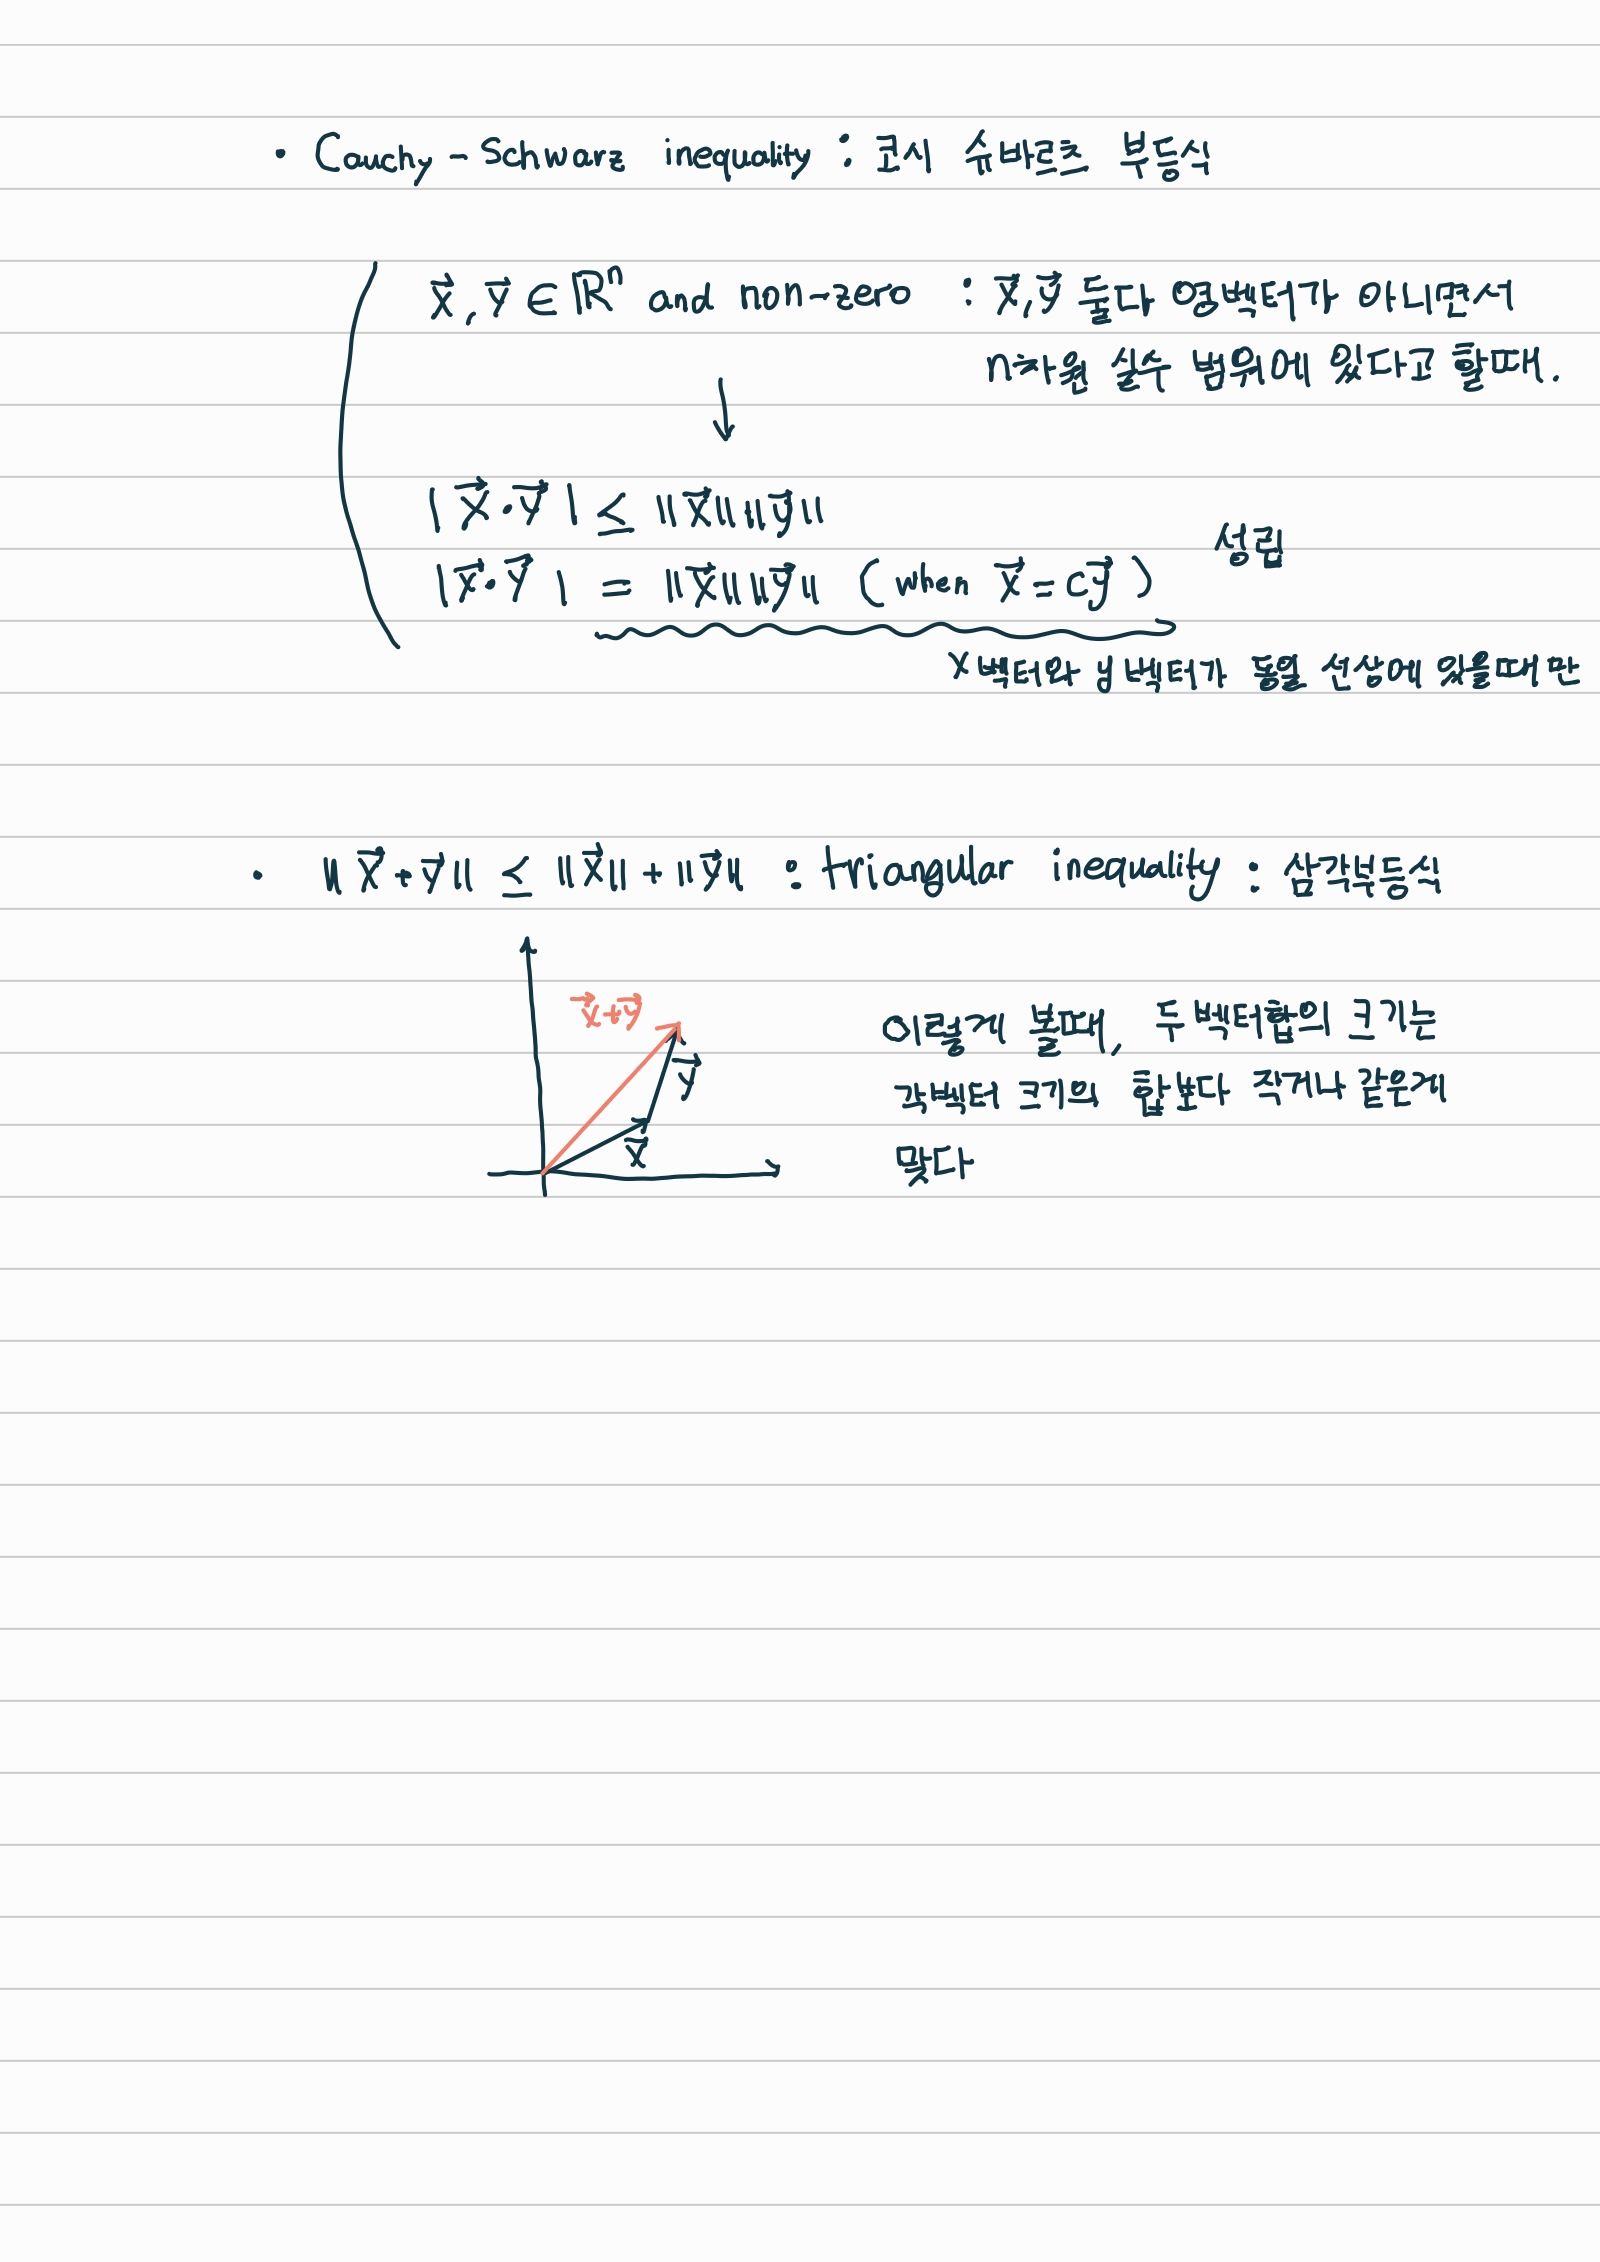 • Cauchy - Schwarz inequality : 코시 슈바르츠 부등식
x⃗, y⃗ ∈ ℝⁿ and non-zero : x⃗, y⃗ 둘다 영벡터가 아니면서
n차원 실수 범위에 있다고 할때.
↓
| x⃗ · y⃗ | ≤ ||x⃗|| ||y⃗||
성립
| x⃗ · y⃗ | = ||x⃗|| ||y⃗|| ( when x⃗ = cy⃗ )
x벡터와 y벡터가 동일 선상에 있을때만
• || x⃗ + y⃗ || ≤ ||x⃗|| + ||y⃗|| : triangular inequality : 삼각부등식
x⃗+y⃗
y⃗
x⃗
이렇게 볼때, 두 벡터합의 크기는
각벡터 크기의 합보다 작거나 같은게
맞다